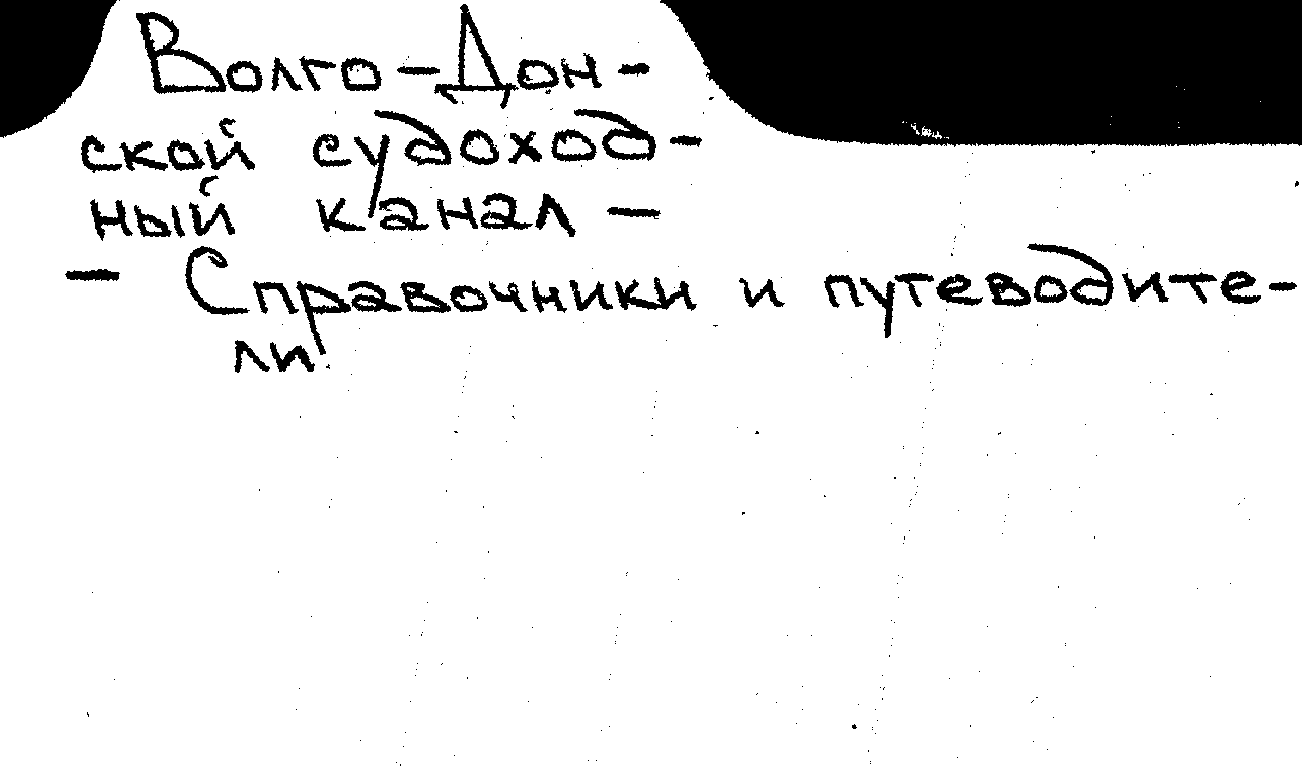 Волго-Дон-
ской судоход-
ный канал —
— Справочники и путеводите-
ли.